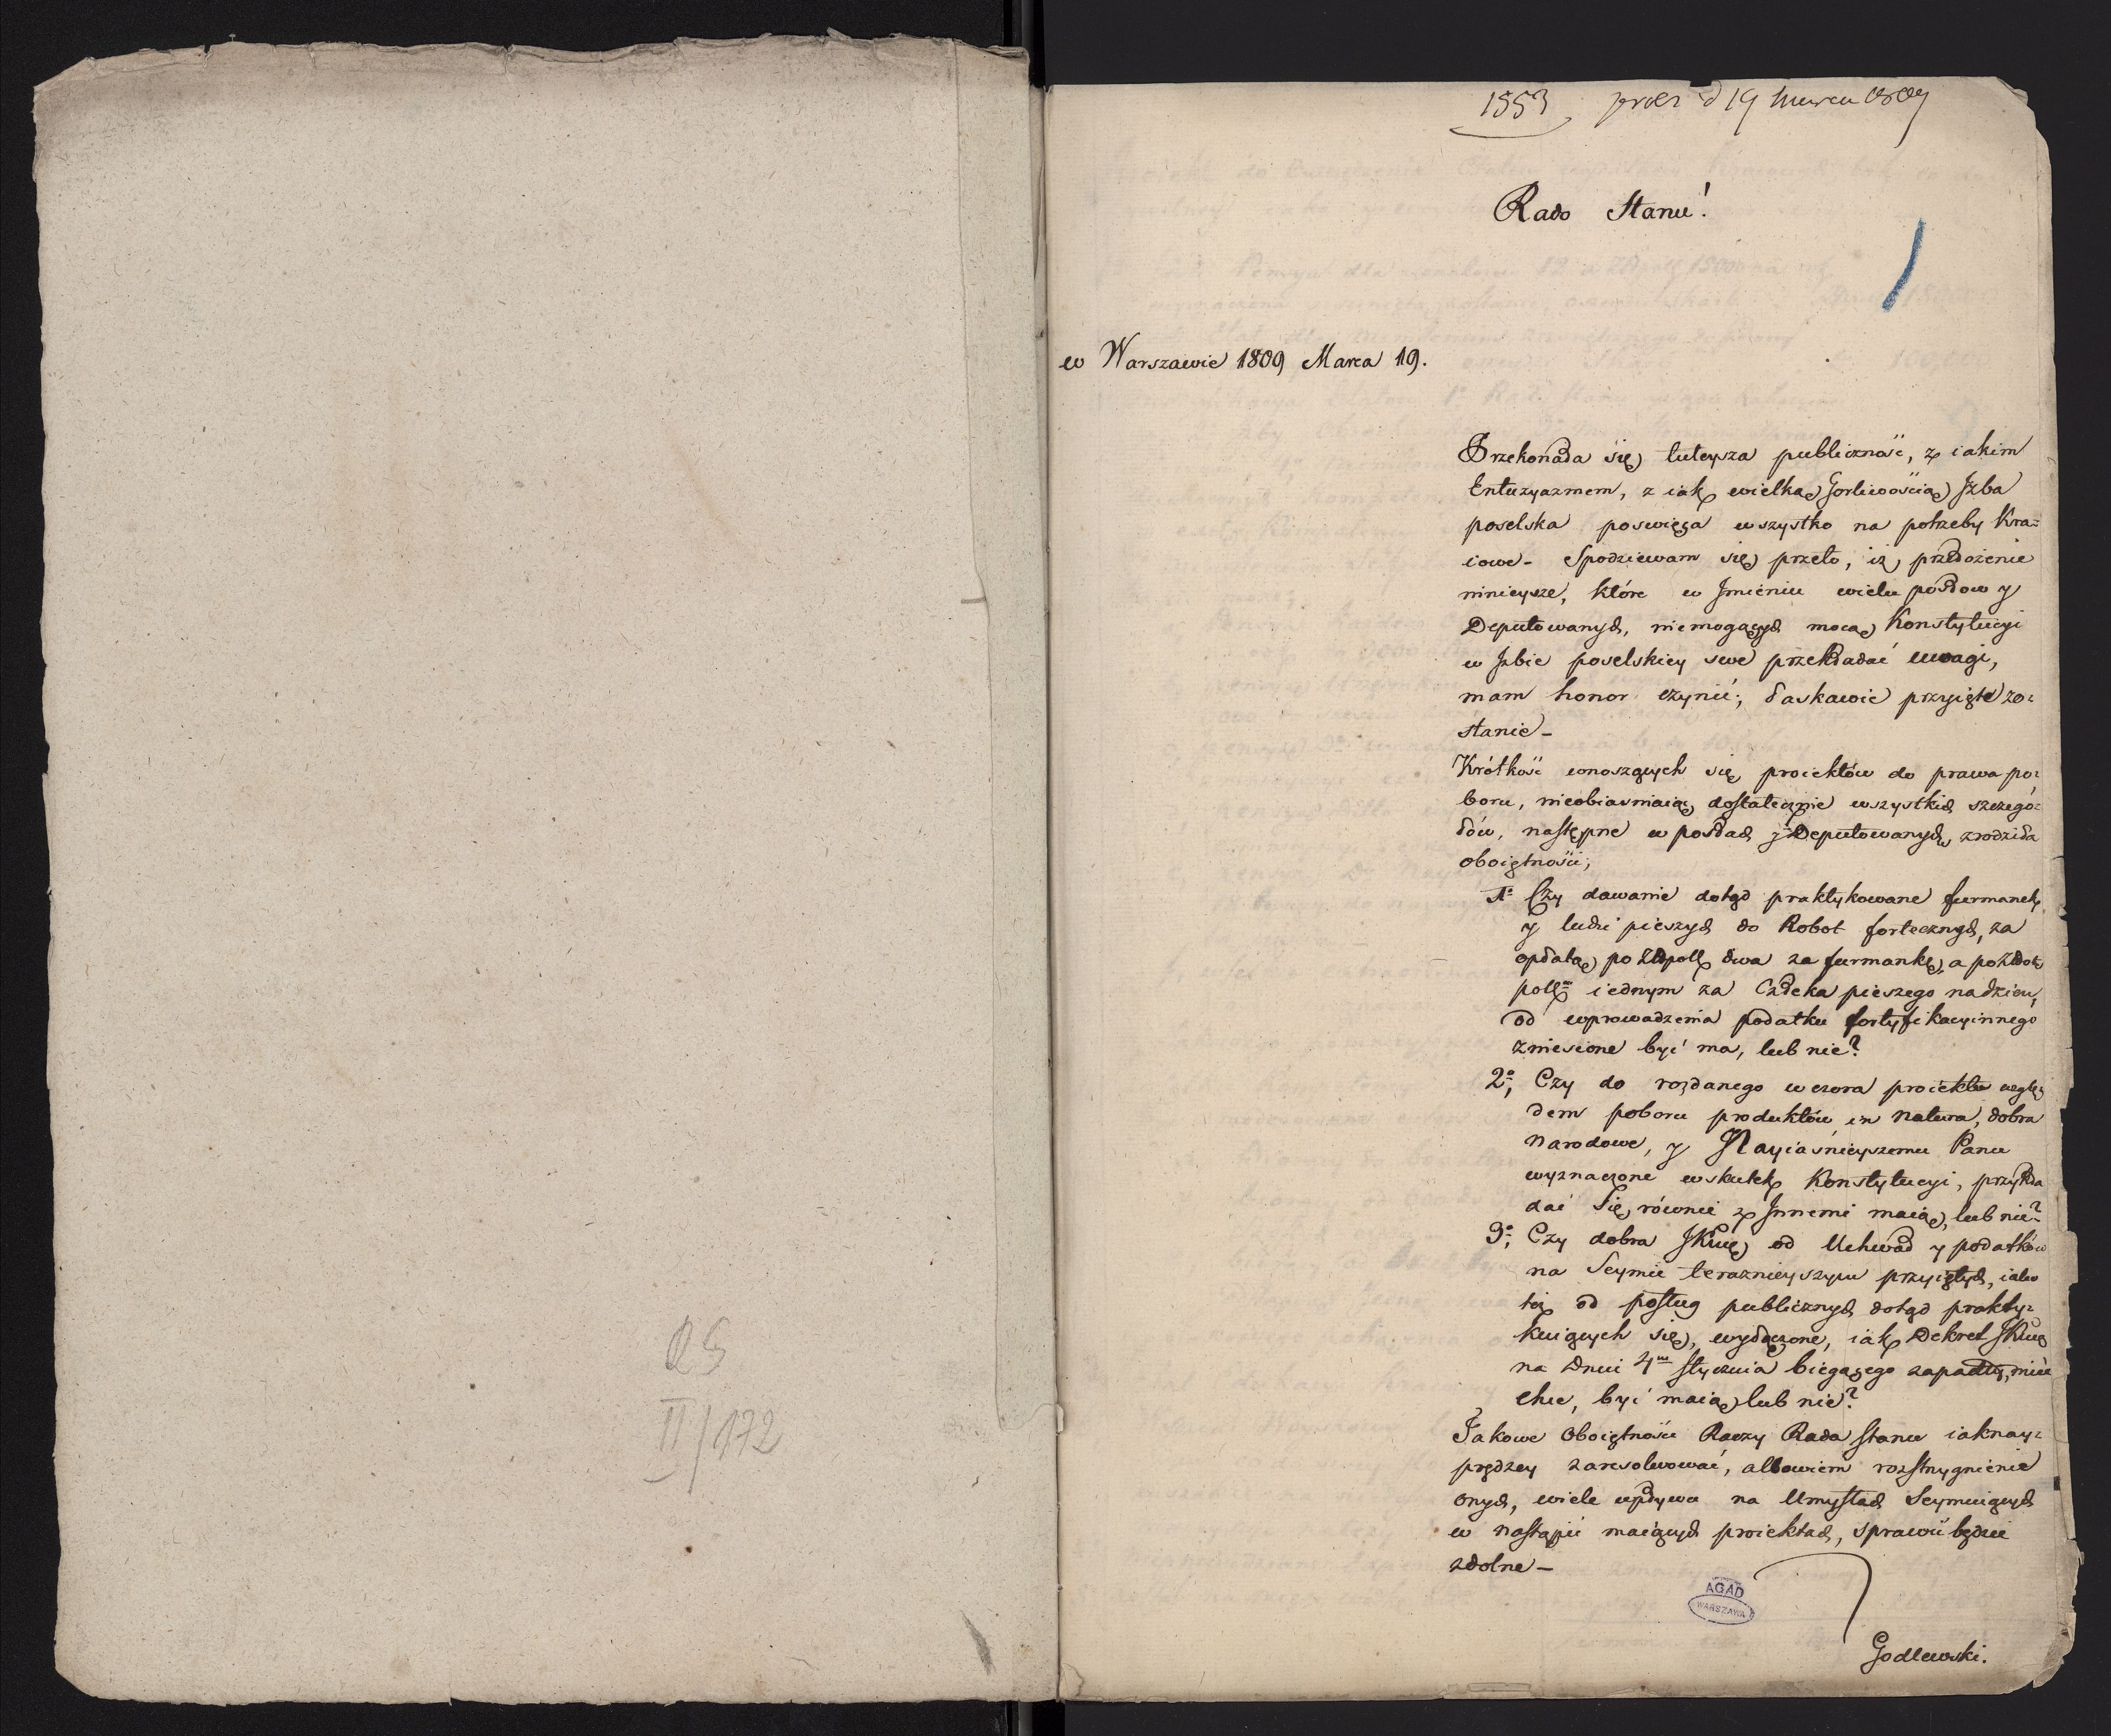 1553 praes d 19 Marca 1809
Rado Stanu!
1
w Warszawie 1809 Marca 19.
Przekonała się tuteysza publiczność, z iakim
Entuzyazmem, z iak wielką Gorliwością Jzba
poselska poswięca wszystko na potrzeby Kra=
iowe – Spodziewam się przeto, iż przełożenie
ninieysze, które w Jmieniu wielu posłow y
Deputowanych, niemogących mocą Konstytucyi
w Jzbie poselskiey swe przekładać uwagi,
mam honor czynić; łaskawie przyięte zo=
stanie –
Krótkość wnoszących się proiektów do prawa po=
boru, nieobiasniaiąc dostatecznie wszystkich szczegó=
łów, następne w posłach y Deputowanych zrodziła
oboiętności;
1o Czy dawanie dotąd praktykowane furmanek
y ludzi pieszych do Robot fortecznych, za
opłatą po Złłpoll dwa za furmankę, a po Złłot
pollm iednym za Człeka pieszego na dzien,
od wprowadzenia podatku fortyfikacyinnego
zniesione być ma, lub nie?
2o; Czy do rozdanego wczora proiektu wzglę=
dem poboru produktów in natura, dobra
Narodowe, y Nayiaśnieyszemu Panu
wyznaczone wskutek Konstytucyi, przykła
dać się równie z Jnnemi maią, lub nie?
3o; Czy dobra JKMci od Uchwał y podatków
na Seymie teraznieyszym przyiętych, iako
też od posług publicznych dotąd prakty=
kuiących się, wyłączone, iak Dekret JKMci
na Dniu 4m stycznia bieżącego zapadły, mieć
chce, być maią lub nie?
Jakowe oboiętności Raczy Rada Stanu iaknay=
prędzey zaresolwować, albowiem rozstrzygnienie
onych, wiele wpływu na Umysłach Seymuiących
w nastąpić maiących proiektach, sprawić będzie
zdolne –
AGAD
WARSZAWA
Godlewski.
II/172